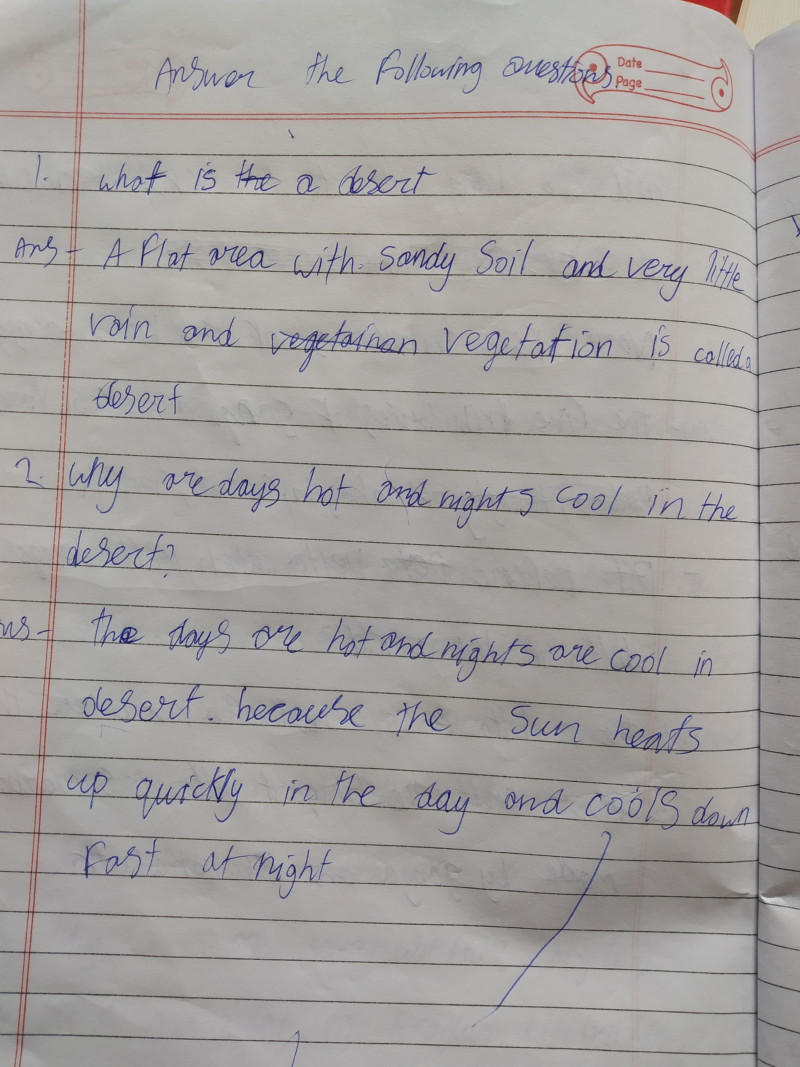 Answer the following questions
Date
Page
1. what is the a desert
Ans - A flat area with sandy Soil and very little
rain and vegetainan vegetation is called a
desert
2. why are days hot and nights cool in the
desert?
ns - the days are hot and nights are cool in
desert. because the sun heats
up quickly in the day and cools down
fast at night